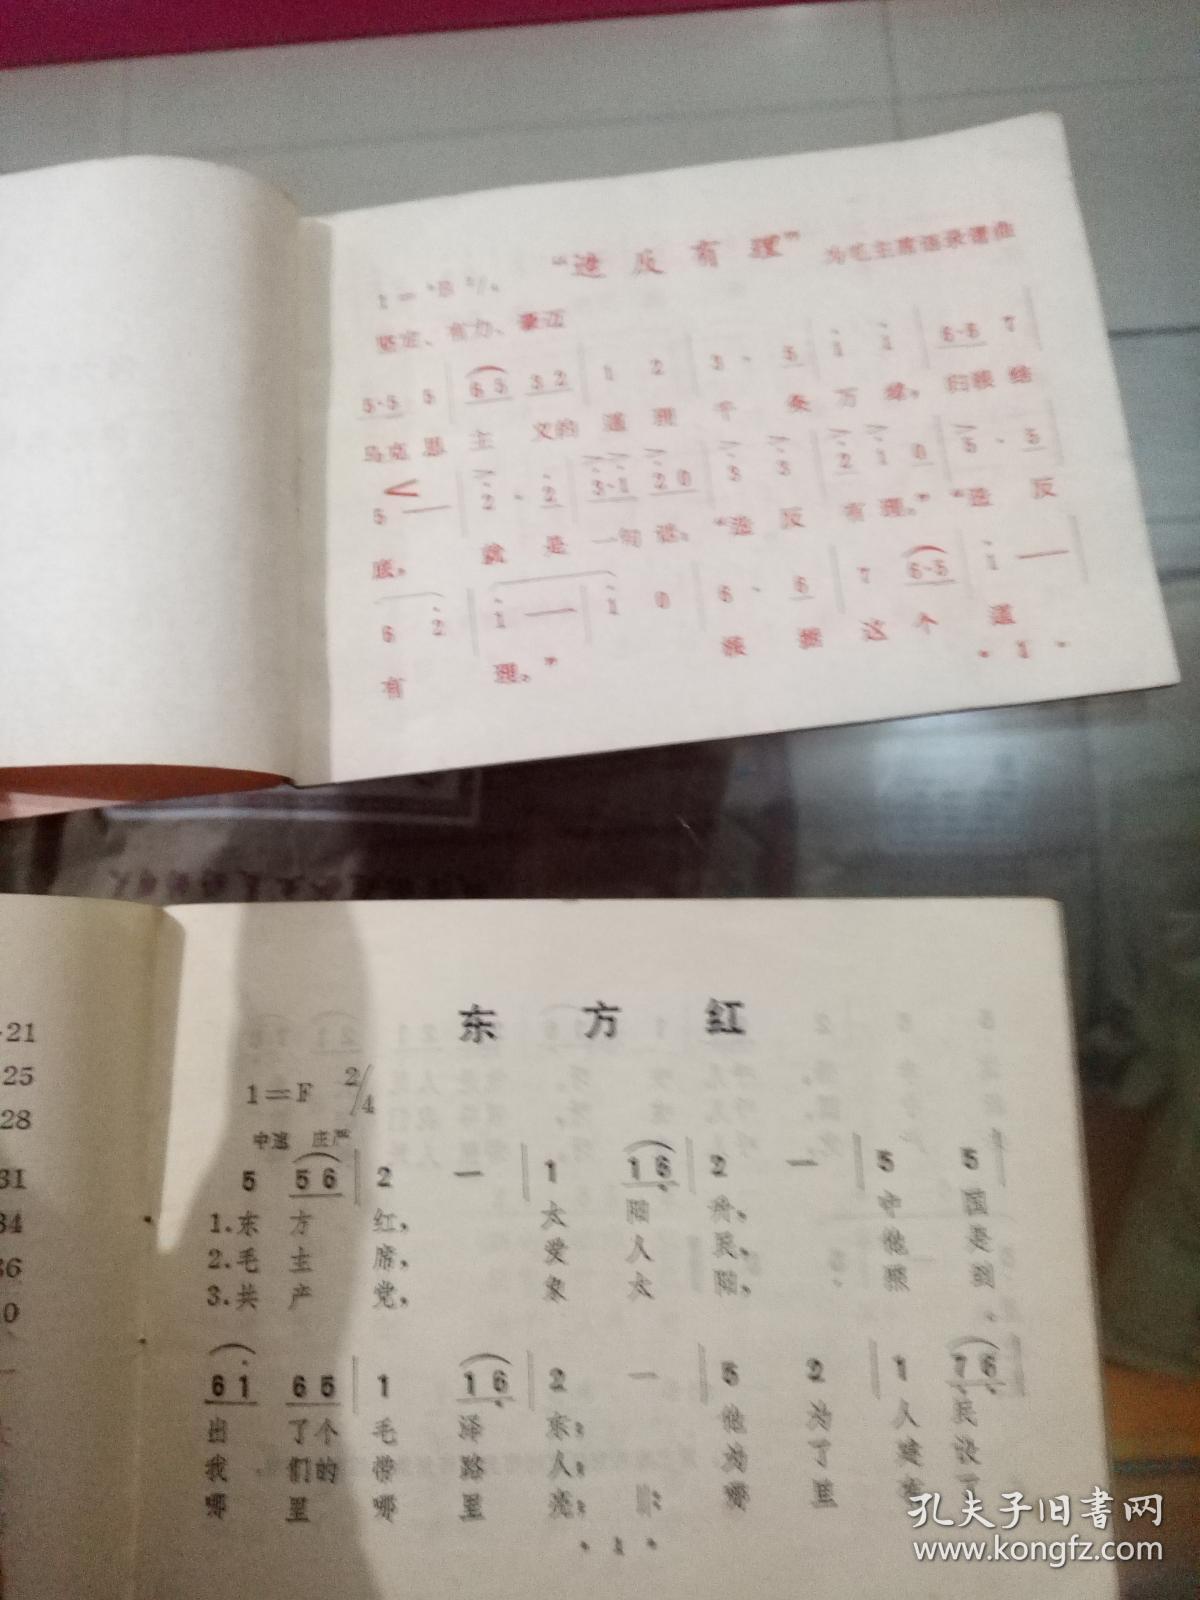 “造反有理” 为毛主席语录谱曲
1=♭B 2/4
坚定、有力、豪迈
5·5 5 | 6 5 3 2 | 1 2 | 3 · 5 | i i | 6·6 7 |
马克思 主 义的 道 理 千 条 万 绪, 归根结
5 — | 2 · 2 | 3·1 2 0 | 3 3 | 2 1 0 | 5 · 5
底, 就 是 一句话: “造 反 有 理。” “造 反
6 2 | i — | i 0 | 6 · 6 | 7 6·5 | i —
有 理。” 根 据 这 个 道
· 1 ·
东方红
1=F 2/4
中速 庄严
5 5 6 | 2 — | 1 1 6 | 2 — | 5 5 |
1.东 方 红, 太 阳 升, 中 国
2.毛 主 席, 爱 人 民, 他 是
3.共 产 党, 象 太 阳, 照 到
6 i 6 5 | 1 1 6 | 2 — | 5 2 | 1 7 6 |
出 了个 毛 泽 东; 他 为 人 民
我 们的 带 路 人; 为 了 建 设
哪 里 哪 里 亮; 哪 里
· 1 ·
·21
25
28
31
34
36
0
孔夫子旧书网
www.kongfz.com